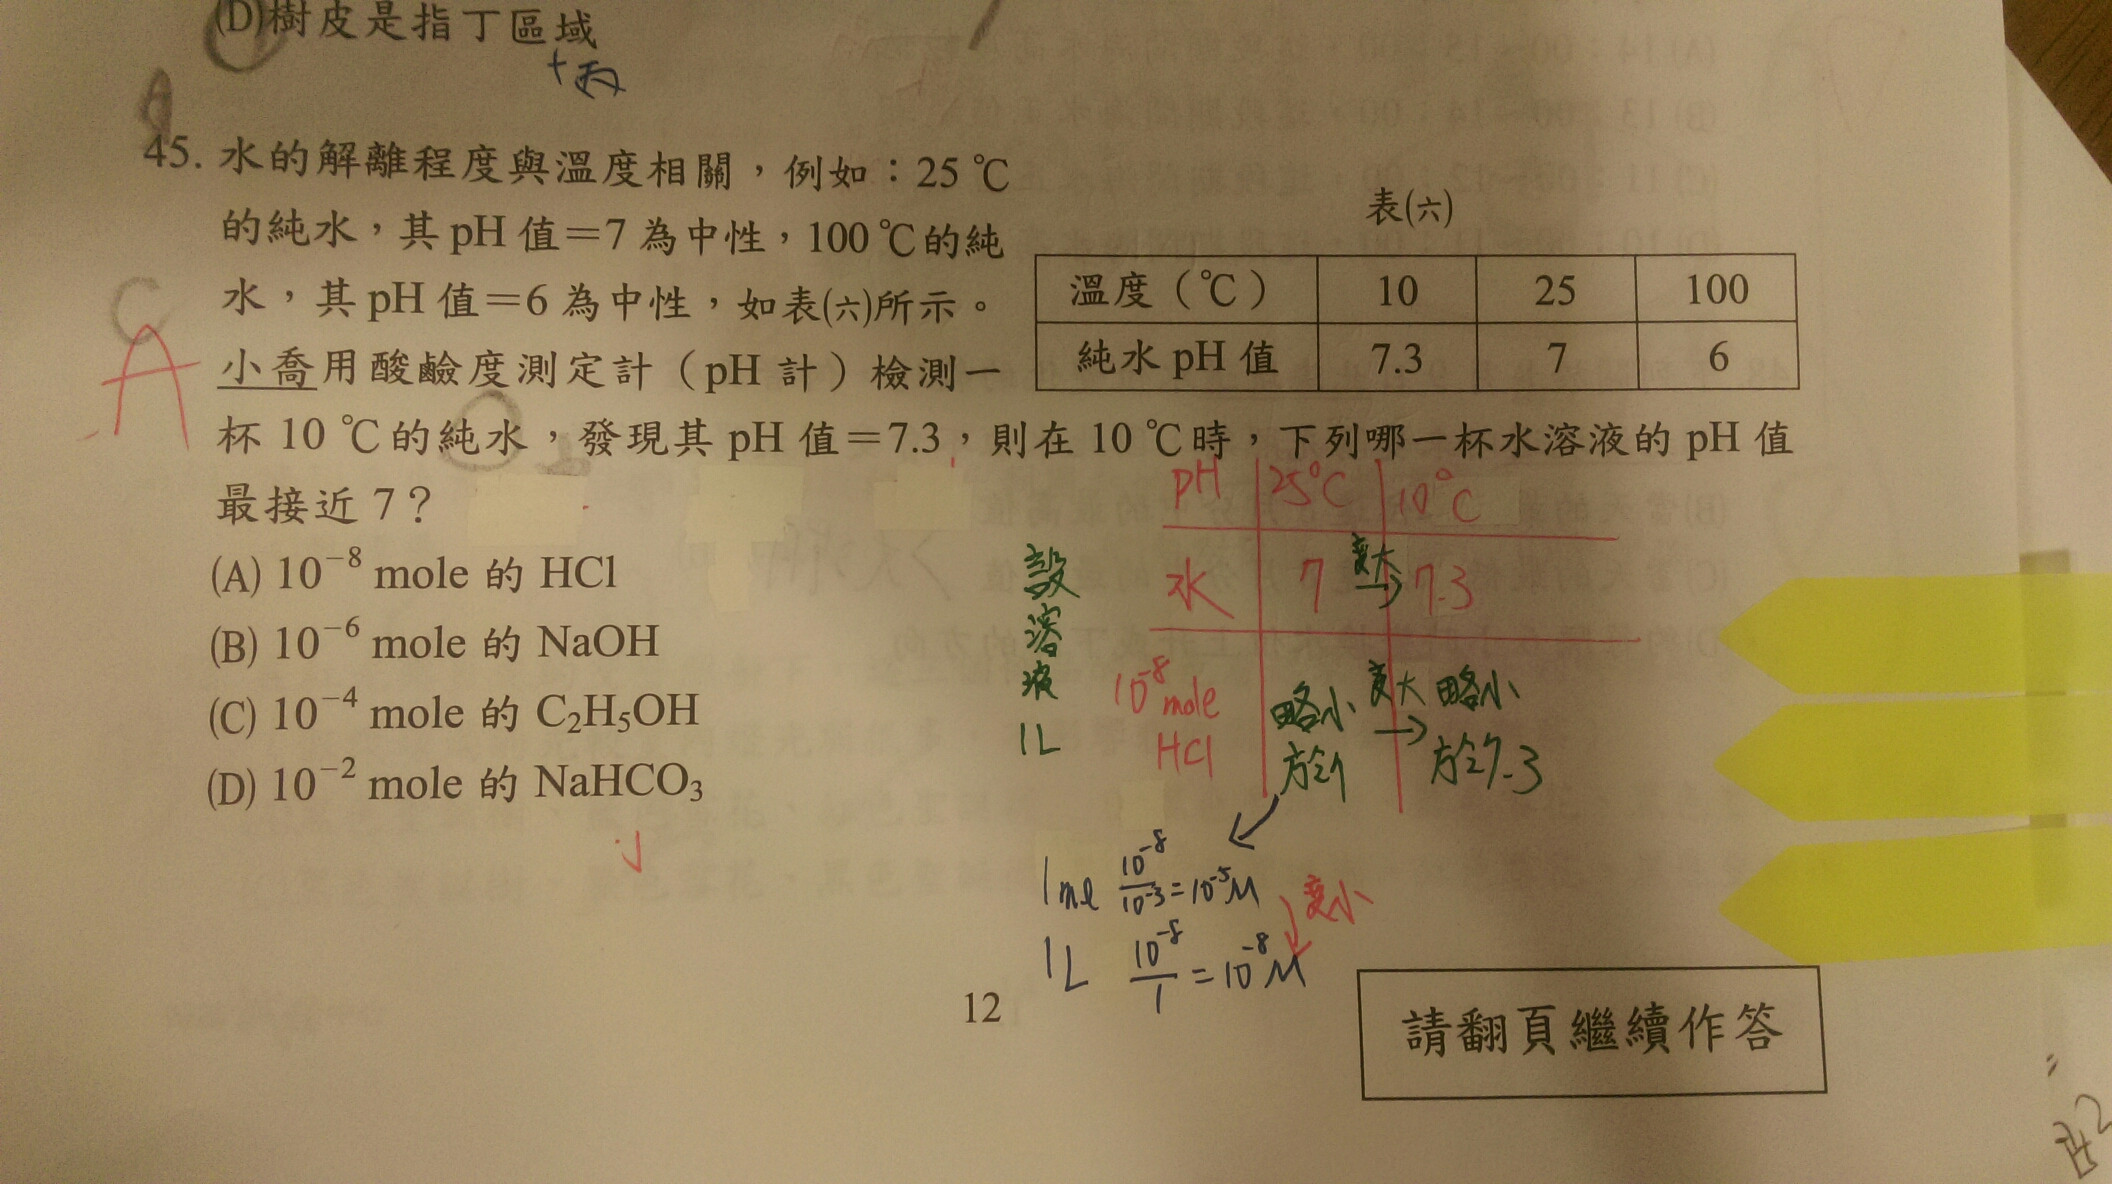 (D)樹皮是指丁區域
+丙
45. 水的解離程度與溫度相關，例如：25 ℃
的純水，其 pH 值＝7 為中性，100 ℃的純
水，其 pH 值＝6 為中性，如表(六)所示。
小喬用酸鹼度測定計（pH 計）檢測一
杯 10 ℃的純水，發現其 pH 值＝7.3，則在 10 ℃時，下列哪一杯水溶液的 pH 值
最接近 7？
C
A
表(六)
溫度（℃） 10 25 100
純水 pH 值 7.3 7 6
(A) 10⁻⁸ mole 的 HCl
(B) 10⁻⁶ mole 的 NaOH
(C) 10⁻⁴ mole 的 C₂H₅OH
(D) 10⁻² mole 的 NaHCO₃
設
溶
液
1L
pH 25°C 10°C
水 7 變大→ 7.3
10⁻⁸ mole HCl 略小於7 變大→ 略小於7.3
1ml 10⁻⁸/10⁻³ = 10⁻⁵M
變小
1L 10⁻⁸/1 = 10⁻⁸M
12
請翻頁繼續作答